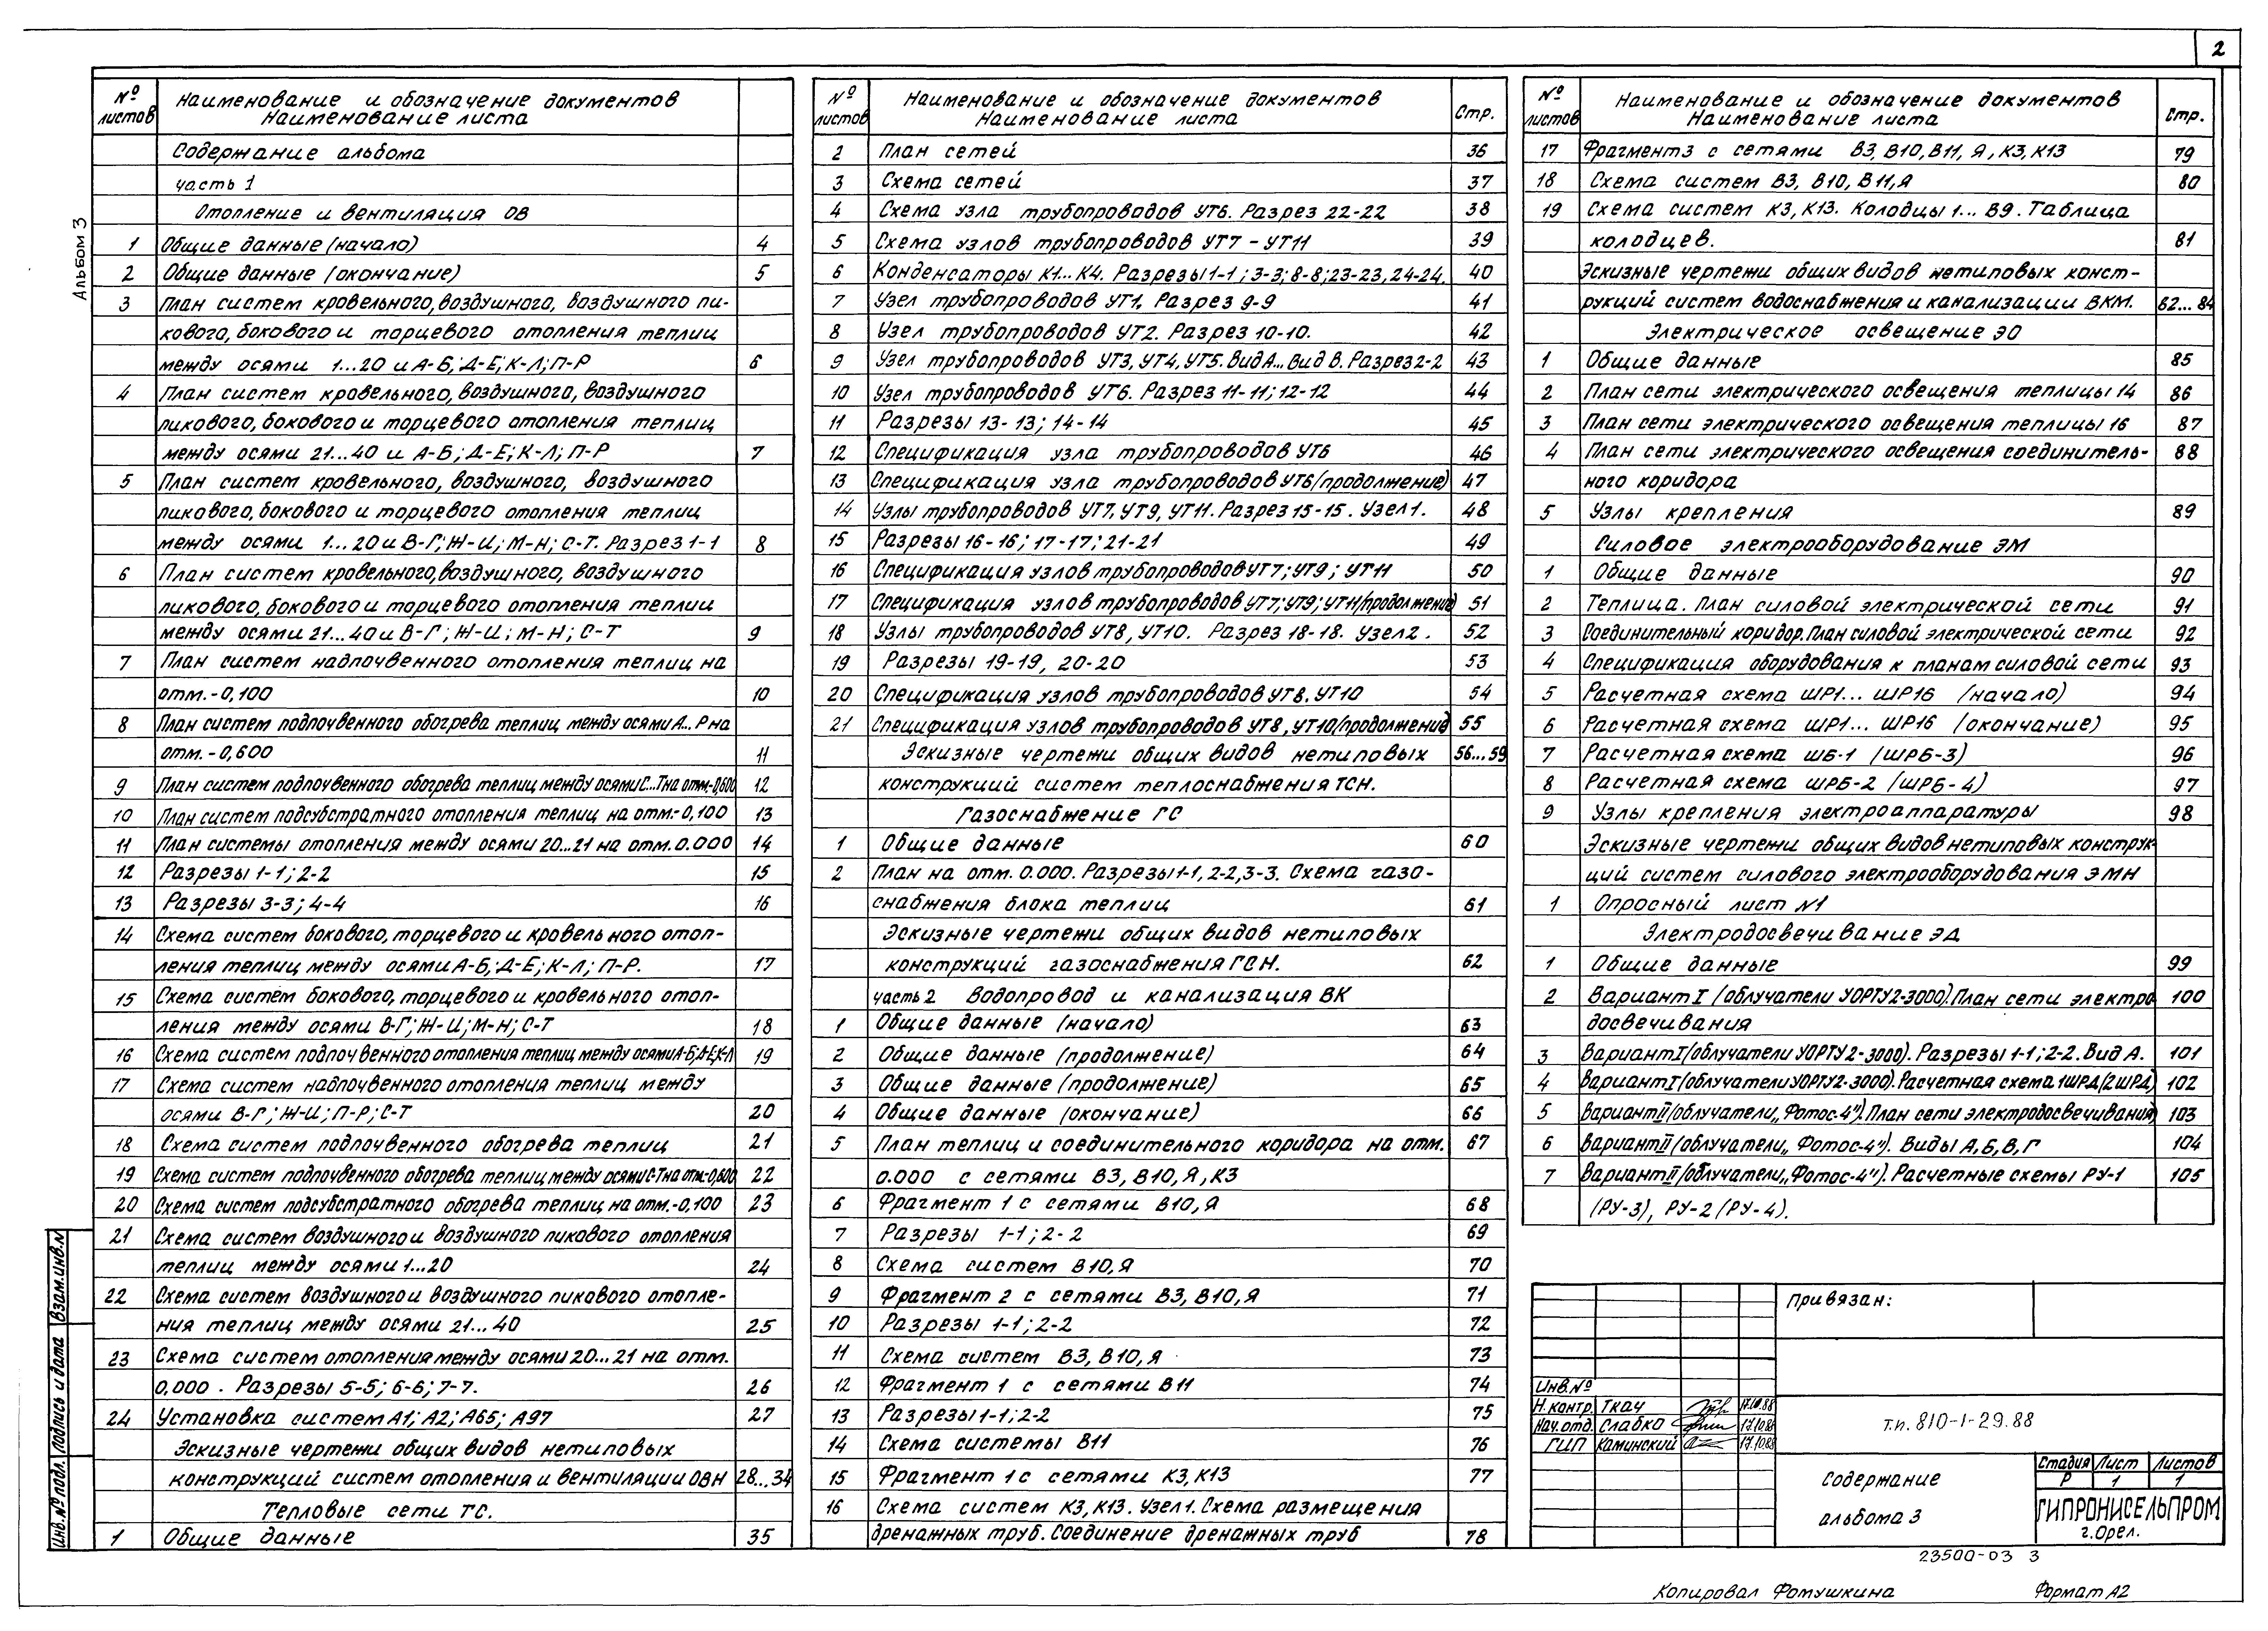 2
Альбом 3
№ листов
Наименование и обозначение документов
Наименование листа
Содержание альбома
часть 1
Отопление и вентиляция ОВ
1 Общие данные (начало) 4
2 Общие данные (окончание) 5
3 План систем кровельного, воздушного, воздушного пи-
кового, бокового и торцевого отопления теплиц
между осями 1...20 и А-Б; Д-Е; К-Л; П-Р 6
4 План систем кровельного, воздушного, воздушного
пикового, бокового и торцевого отопления теплиц
между осями 21...40 и А-Б; Д-Е; К-Л; П-Р 7
5 План систем кровельного, воздушного, воздушного
пикового, бокового и торцевого отопления теплиц
между осями 1...20 и В-Г; Ж-И; М-Н; С-Т. Разрез 1-1 8
6 План систем кровельного, воздушного, воздушного
пикового, бокового и торцевого отопления теплиц
между осями 21...40 и В-Г; Ж-И; М-Н; С-Т 9
7 План систем надпочвенного отопления теплиц на
отм. -0,100 10
8 План систем подпочвенного обогрева теплиц между осями А...Р на
отм. -0,600 11
9 План систем подпочвенного обогрева теплиц между осями С...Т на отм.-0,600 12
10 План систем подсубстратного отопления теплиц на отм.-0,100 13
11 План системы отопления между осями 20...21 на отм. 0.000 14
12 Разрезы 1-1; 2-2 15
13 Разрезы 3-3; 4-4 16
14 Схема систем бокового, торцевого и кровельного отоп-
ления теплиц между осями А-Б; Д-Е; К-Л; П-Р. 17
15 Схема систем бокового, торцевого и кровельного отоп-
ления между осями В-Г; Ж-И; М-Н; С-Т 18
16 Схема систем подпочвенного отопления теплиц между осями А-Б; Д-Е; К-Л 19
17 Схема систем надпочвенного отопления теплиц между
осями В-Г; Ж-И; П-Р; С-Т 20
18 Схема систем подпочвенного обогрева теплиц 21
19 Схема систем подпочвенного обогрева теплиц между осями С-Т на отм.-0,600 22
20 Схема систем подсубстратного обогрева теплиц на отм.-0,100 23
21 Схема систем воздушного и воздушного пикового отопления
теплиц между осями 1...20 24
22 Схема систем воздушного и воздушного пикового отопле-
ния теплиц между осями 21...40 25
23 Схема систем отопления между осями 20...21 на отм.
0,000. Разрезы 5-5; 6-6; 7-7. 26
24 Установка систем А1; А2; А65; А97 27
Эскизные чертежи общих видов нетиповых
конструкций систем отопления и вентиляции ОВН 28...34
Тепловые сети ТС.
1 Общие данные 35
№ листов
Наименование и обозначение документов
Наименование листа
Стр.
2 План сетей 36
3 Схема сетей 37
4 Схема узла трубопроводов УТ6. Разрез 22-22 38
5 Схема узлов трубопроводов УТ7 - УТ11 39
6 Конденсаторы К1...К4. Разрезы 1-1; 3-3; 8-8; 23-23, 24-24. 40
7 Узел трубопроводов УТ1. Разрез 9-9 41
8 Узел трубопроводов УТ2. Разрез 10-10. 42
9 Узел трубопроводов УТ3, УТ4, УТ5. Вид А... Вид В. Разрез 2-2 43
10 Узел трубопроводов УТ6. Разрез 11-11; 12-12 44
11 Разрезы 13-13; 14-14 45
12 Спецификация узла трубопроводов УТ6 46
13 Спецификация узла трубопроводов УТ6 (продолжение) 47
14 Узлы трубопроводов УТ7, УТ9, УТ11. Разрез 15-15. Узел 1. 48
15 Разрезы 16-16; 17-17; 21-21 49
16 Спецификация узлов трубопроводов УТ7; УТ9; УТ11 50
17 Спецификация узлов трубопроводов УТ7; УТ9; УТ11 (продолжение) 51
18 Узлы трубопроводов УТ8, УТ10. Разрез 18-18. Узел 2. 52
19 Разрезы 19-19, 20-20 53
20 Спецификация узлов трубопроводов УТ8. УТ10 54
21 Спецификация узлов трубопроводов УТ8, УТ10 (продолжение) 55
Эскизные чертежи общих видов нетиповых 56...59
конструкций систем теплоснабжения ТСН.
Газоснабжение ГС
1 Общие данные 60
2 План на отм. 0.000. Разрезы 1-1, 2-2, 3-3. Схема газо-
снабжения блока теплиц 61
Эскизные чертежи общих видов нетиповых
конструкций газоснабжения ГСН. 62
часть 2 Водопровод и канализация ВК
1 Общие данные (начало) 63
2 Общие данные (продолжение) 64
3 Общие данные (продолжение) 65
4 Общие данные (окончание) 66
5 План теплиц и соединительного коридора на отм. 67
0.000 с сетями В3, В10, Я, К3
6 Фрагмент 1 с сетями В10, Я 68
7 Разрезы 1-1; 2-2 69
8 Схема систем В10, Я 70
9 Фрагмент 2 с сетями В3, В10, Я 71
10 Разрезы 1-1; 2-2 72
11 Схема систем В3, В10, Я 73
12 Фрагмент 1 с сетями В11 74
13 Разрезы 1-1; 2-2 75
14 Схема системы В11 76
15 Фрагмент 1 с сетями К3, К13 77
16 Схема систем К3, К13. Узел 1. Схема размещения
дренажных труб. Соединение дренажных труб 78
№ листов
Наименование и обозначение документов
Наименование листа
Стр.
17 Фрагмент 3 с сетями В3, В10, В11, Я, К3, К13 79
18 Схема систем В3, В10, В11, Я 80
19 Схема систем К3, К13. Колодцы 1... В9. Таблица
колодцев. 81
Эскизные чертежи общих видов нетиповых конст-
рукций систем водоснабжения и канализации ВКМ. 62...84
Электрическое освещение ЭО
1 Общие данные 85
2 План сети электрического освещения теплицы 14 86
3 План сети электрического освещения теплицы 16 87
4 План сети электрического освещения соединитель- 88
ного коридора
5 Узлы крепления 89
Силовое электрооборудование ЭМ
1 Общие данные 90
2 Теплица. План силовой электрической сети 91
3 Соединительный коридор. План силовой электрической сети 92
4 Спецификация оборудования к планам силовой сети 93
5 Расчетная схема ШР1... ШР16 (начало) 94
6 Расчетная схема ШР1... ШР16 (окончание) 95
7 Расчетная схема ШБ-1 (ШРБ-3) 96
8 Расчетная схема ШРБ-2 (ШРБ-4) 97
9 Узлы крепления электроаппаратуры 98
Эскизные чертежи общих видов нетиповых конструк-
ций систем силового электрооборудования ЭМН
1 Опросный лист №1
Электродосвечивание ЭД
1 Общие данные 99
2 Вариант I (облучатели УОРТУ2-3000). План сети электро 100
досвечивания
3 Вариант I (облучатели УОРТУ2-3000). Разрезы 1-1; 2-2. Вид А. 101
4 Вариант I (облучатели УОРТУ2-3000). Расчетная схема 1ШРД (2ШРД) 102
5 Вариант II (облучатели „Фотос-4"). План сети электродосвечивания 103
6 Вариант II (облучатели „Фотос-4"). Виды А, Б, В, Г 104
7 Вариант II (облучатели „Фотос-4"). Расчетные схемы РУ-1 105
(РУ-3), РУ-2 (РУ-4).
Привязан:
Инв.№
Н.контр. Ткач 17.10.88
Нач.отд. Слабко 17.10.88
ГИП Каминский 17.10.88
т.п. 810-1-29.88
Содержание
альбома 3
Стадия Лист Листов
Р 1 1
ГИПРОНИСЕЛЬПРОМ
г.Орел.
23500-03 3
Копировал Фомушкина
Формат А2
Взам.инв.№
Подпись и дата
Инв.№ подл.